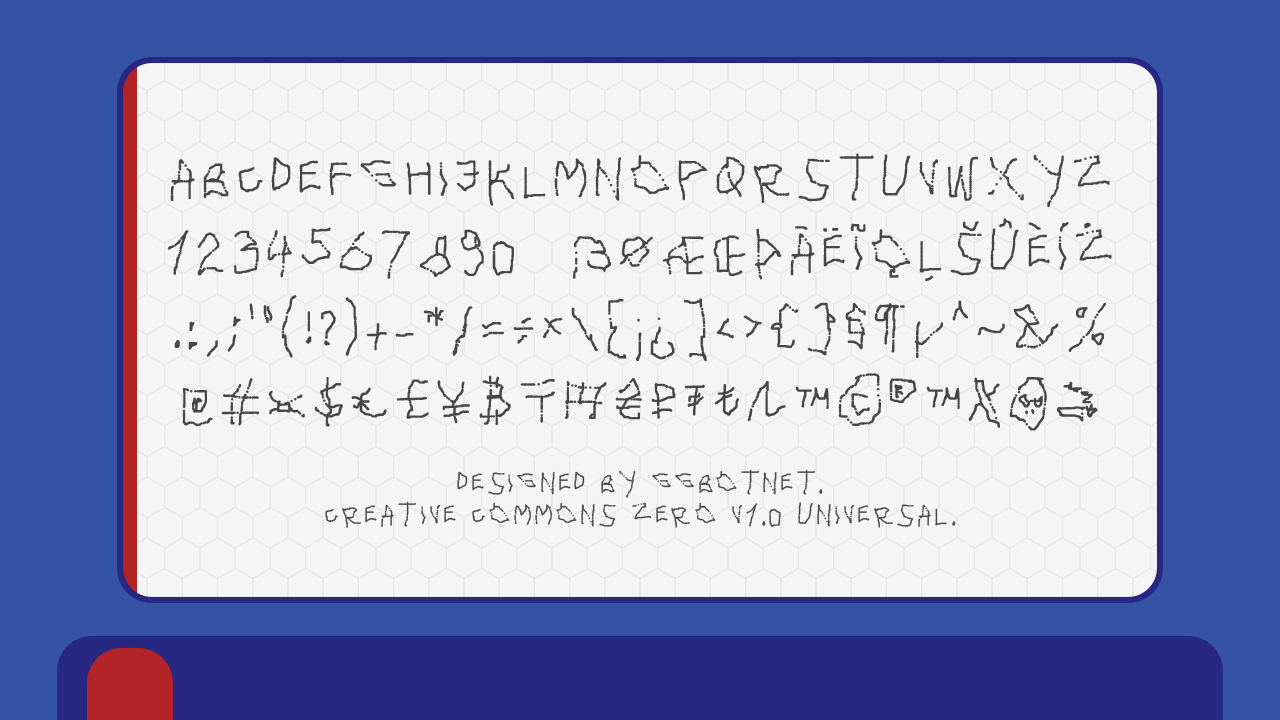 ABCDEFGHIJKLMNOPQRSTUVWXYZ
1234567890 ẞØÆŒÞÄËÏQĻŠÛÈÍŻ
.:,;'"(!?)+-*/=÷×\[¡¿]<>{}§¶µ^~&%
@#¤$€£¥₿₸
™©®™
DESIGNED BY GGBOTNET.
CREATIVE COMMONS ZERO V1.0 UNIVERSAL.